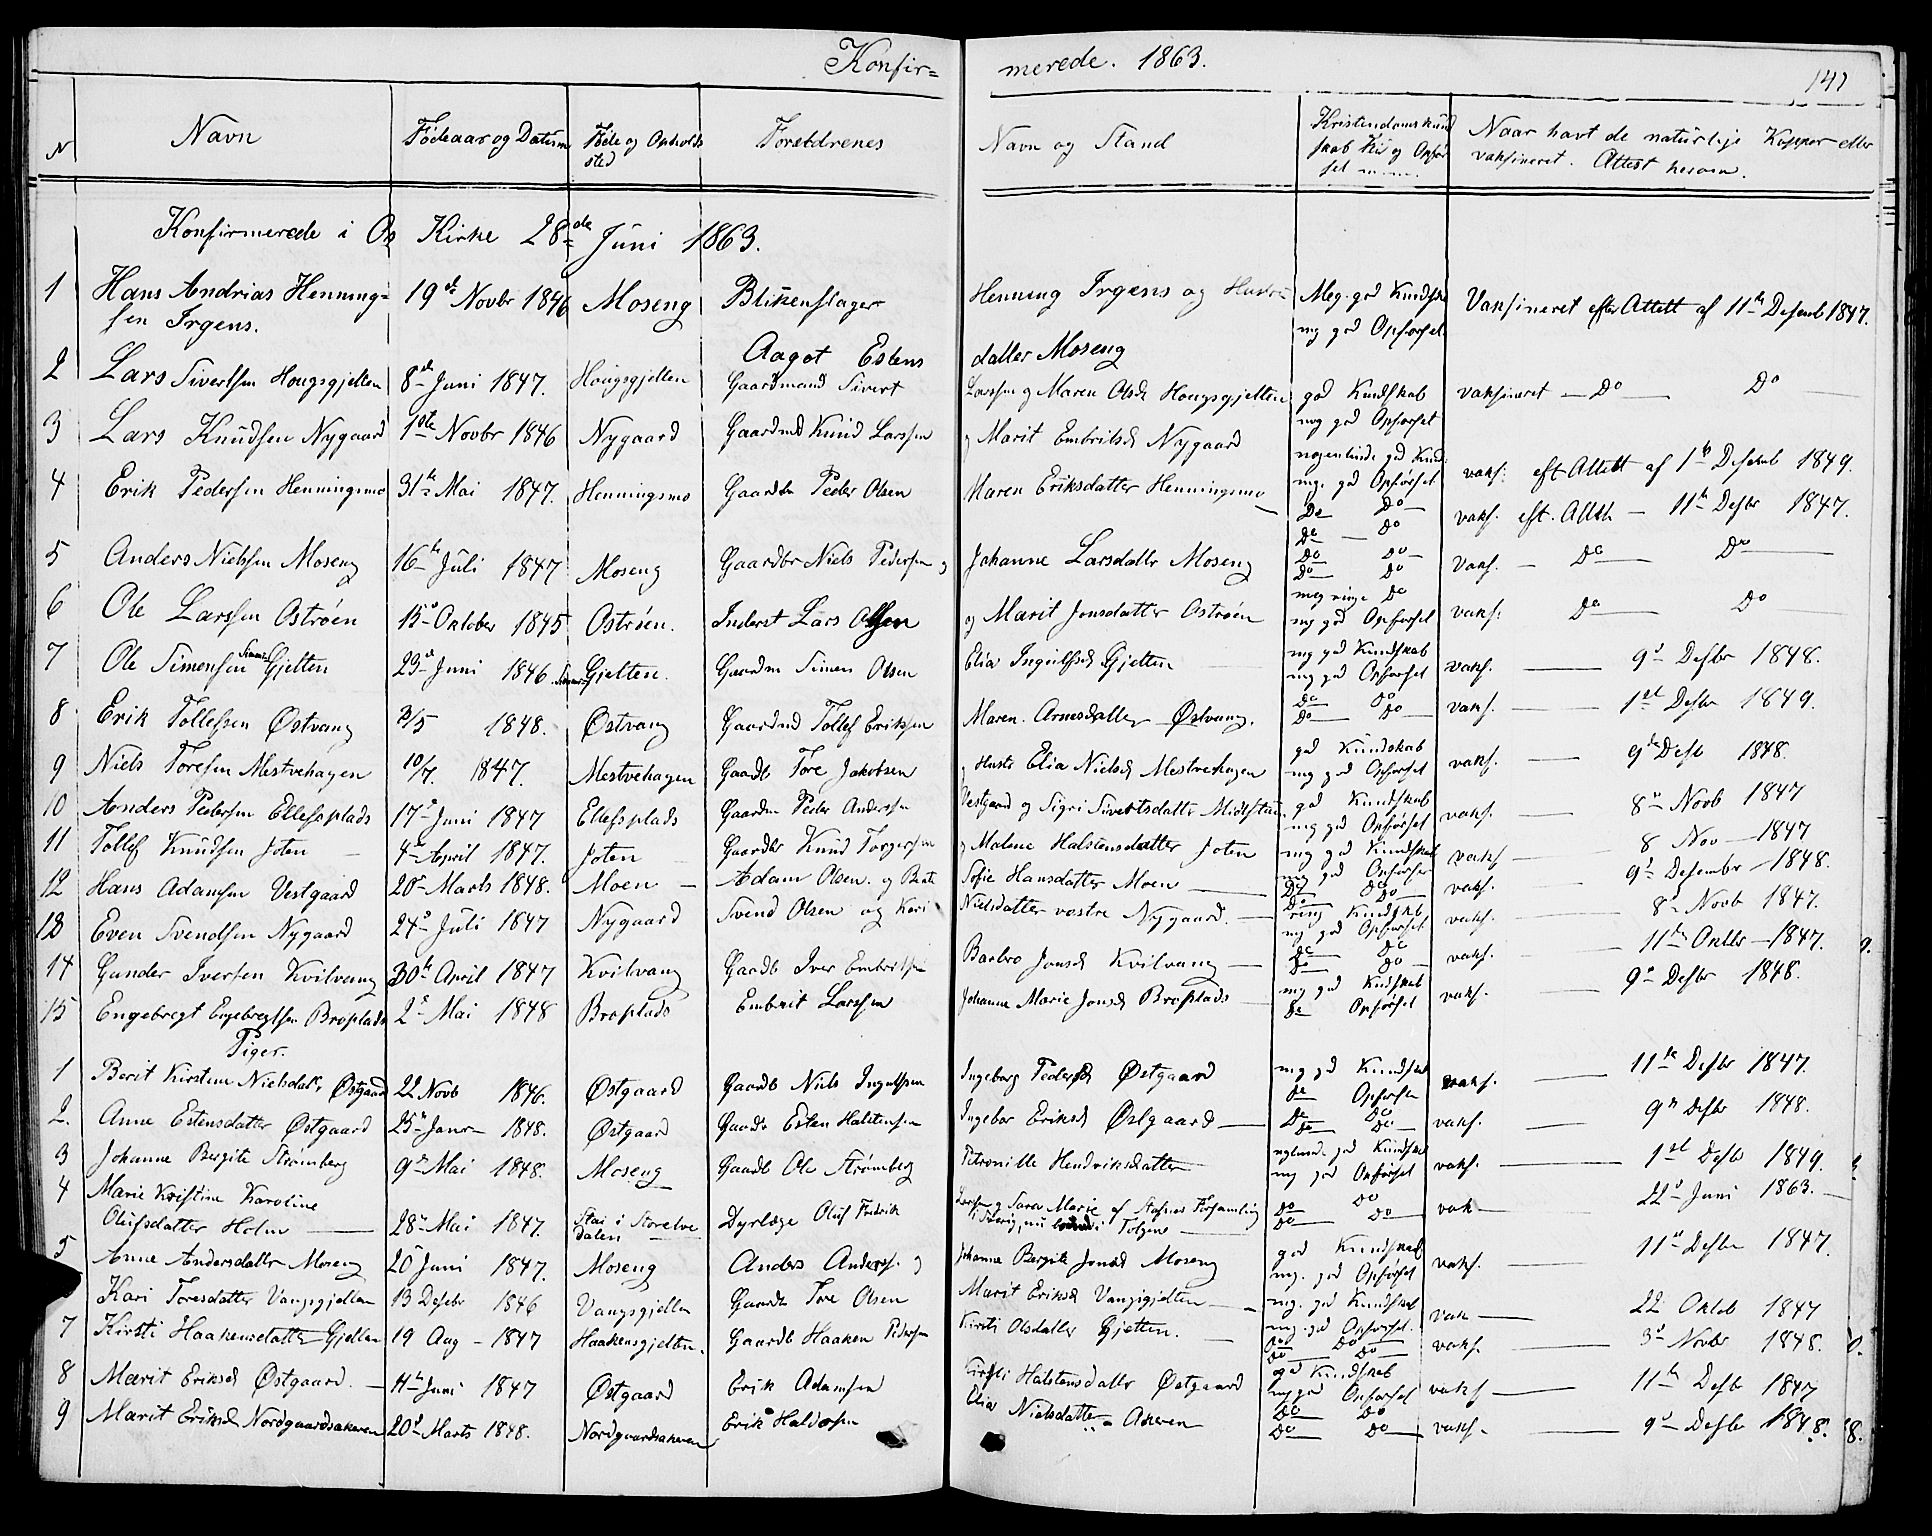 Konfir= merede. 1863.
141
N Navn Fødeaar og Datum Føde og Opholds sted Forældrenes Navn og Stand Kristendomskund
skab Flid og Opfør
sel
Naar havt de naturlige Kopper eller
vaksineret. Attest herom.
Konfirmerede i Os Kirke 28de Juni 1863.
1 Hans Andrias Henning= 19de Novbr 1846 Moseng Blikenslager Henning Irgens og Hustr Meg. god Kundsk Vaksineret efter Attest af 11te Desemb 1847.
sen Irgens. Aagot Estens datter Moseng mg god Opførsel
2 Lars Sivertsen Hougsgjelten 8de Juni 1847. Hougsgjelten Gaardmand Sivert Larssen og Maren Olsd Hougsgjelten god Kundskab vaksineret — Do — Do
mg god Opførsel
3 Lars Knudsen Nygaard 1ste Novbr 1846 Nygaard Gaardmd Knud Larssen og Marit Embritsd Nygaard nogenlunde god Kund. vaks: eft Attest af 1ste Desemb 1849.
mg. god Opførsel
4 Erik Pedersen Henningsmo 31te Mai 1847. Henningsmo Gaardbr Peder Olsen Maren Eriksdatter Henningsmo Do Do vaks. eft. Attest — 11te Desbr 1847.
Do — Do
5 Anders Nielssen Moseng 16te Juli 1847 Moseng Gaardbr Niels Pedersen og Johanne Larsdattr Moseng Do Do vaks. — Do — Do
Do Do
6 Ole Larssen Ostrøen 15de Oktober 1845 Ostrøen. Inderst Lars Olsen og Marit Jonsdatter Ostrøen meg ringe Do vaks: Do Do
mg god Opførsel
7 Ole Simensen Simens Gjelten 23de Juni 1846. Simens Gjelten. Gaardm Simen Olsen Elia Ingulfsd Gjelten mg god Kundskab vaks. — 9de Desbr 1848.
mg god Opførsel
8 Erik Tollefsen Østvang 2/5 1848. Østvang Gaardmd Tollef Eriksen Maren Arnesdatter Østvang. Do Do vaks. — 1ste Desbr 1849.
Do Do
9 Niels Toresen Mestvehagen 10/7. 1847. Mestvehagen Gaardb Tore Jakobsen og Hustr Elia Nielsd Mestvehagen god Kundskab vaks. — 9de Desb 1848.
mg god Opførsel
10 Anders Pedersen Ellefsplads 17de Juni 1847 Ellefsplads Gaardm Peder Andersen Vestgaard og Sigri Sivertsdatter god Kundskab vaks. 8de Novb 1847
mg god Opførsel
11 Tollef Knudsen Joten 4de April 1847. Joten Gaardbr Knud Torgersen og Malene Halstensdatter Joten mg god Kundskab vaks — 8 Nov — 1847
mg god Opførsel
12 Hans Adamsen Vestgaard 20de Marts 1848. Moen — Adam Olsen og Berte Sofie Hansdatter Moen Do Do vaks. 9de Desember — 1848.
Do Do
13 Even Svendsen Nygaard 24de Juli 1847 Nygaard Svend Olsen og Kari Nielsdatter vestre Nygaard. — ring Kundskab vaks. 8de Novb 1847.
mg god Opførsel
14 Gunder Iversen Kvilvang 30te April 1847 Kvilvang Gaardb Iver Embritsen Barbro Jonsd Kvilvang Do Do vaks. 11te Oktbr — 1847.
Do Do
15 Engebregt Engebregtsen Broplads 2de Mai 1848 Broplads Embrit Larssen Johanne Marie Jonsd Broplads mg god Kundskab vaks. 9de Desbr 1848.
Do Opførsel
Piger.
1 Berit Kirstine Nielsdatr Østgaard 22 Novb 1846. Østgaard Gaardb Niels Ingulfsen Ingeborg Pedersd Østgaard mg god Kundskab vaks. — 11te Desbr 1847.
Do Opførsel
2. Anne Estensdatter Østgaard 25de Janr — 1848. Østgaard Gaardbr Esten Halstensen Ingebor Eriksd Østgaard — Do Do vaks. — 9de Desbr 1848.
Do Do
3 Johanne Bergite Strømberg 9de Mai 1848. Moseng Gaardb Ole Strømberg Petronille Hendriksdatter nglund. god Kundskab vaks. — 1ste Desbr 1849.
mg god Opførsel
4 Marie Kristine Karoline
Olufsdatter Holm — 28de Mai 1847. Stai i Storelv dalen Dyrlæge Oluf Fredrik og Sara Marie af Menighed i Tolgen Do Do vak — 22de Juni 1863.
Do Do
5 Anne Andersdattr Moseng 20de Juni 1847. Moseng Anders Anderss. og Johanne Bergite Jonsd Moseng god Kundskab vaks. — 11te Desbr 1847.
mg. god Opførsel
Kari Toresdatter Vangsgjelten 13 Desebr 1846 Vangsgjelten Gaardb Tore Olsen Marit Eriksd Vangsgjelten — mg. god Kundskab vak — 22 Oktob 1847
mg. god Opførsel.
7 Kirsti Haakensdatter Gjelten 19 Aug — 1847 Haakensgjelten. Gaardb Haaken Pedersen Kirsti Olsdatter Gjelten. Do Do vaks. 3de Novbr 1848.
Do Do
8 Marit Eriksd Østgaard. — 11te Juni 1847 Østgaard Erik Adamsen Kirsti Halstensdattr Østgaard god Kundskab vaks — 11te Desbr 1847
mg god Opførsel
9 Marit Eriksd Nordgaardsakeren 20de Marts 1848. Nordgaardsakeren Erik Haldosen Elia Nielsdatter Akeren Do Do vaks. — 9de Desbr 1848.
Do Do